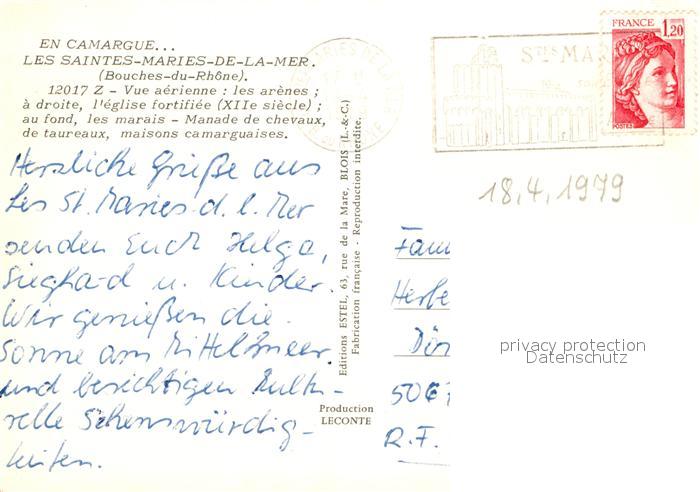 EN CAMARGUE...
LES SAINTES-MARIES-DE-LA-MER.
(Bouches-du-Rhône).
12017 Z - Vue aérienne : les arènes ;
à droite, l'église fortifiée (XIIe siècle) ;
au fond, les marais - Manade de chevaux,
de taureaux, maisons camarguaises.
Herzliche Grüße aus
Les St. Maries d. l. Mer
senden Euch Helga,
Sieghard u. Kinder.
Wir genießen die
Sonne am Mittelmeer
und besichtigen kultu-
relle Sehenswürdig-
keiten.
Editions ESTEL, 63, rue de la Mare, BLOIS (L.-&-C.)
Fabrication française - Reproduction interdite.
Production
LECONTE
STES MAR
FRANCE
1,20
POSTES
18.4.1979
Fam
Herbe
Dör
506
R.F.
privacy protection
Datenschutz